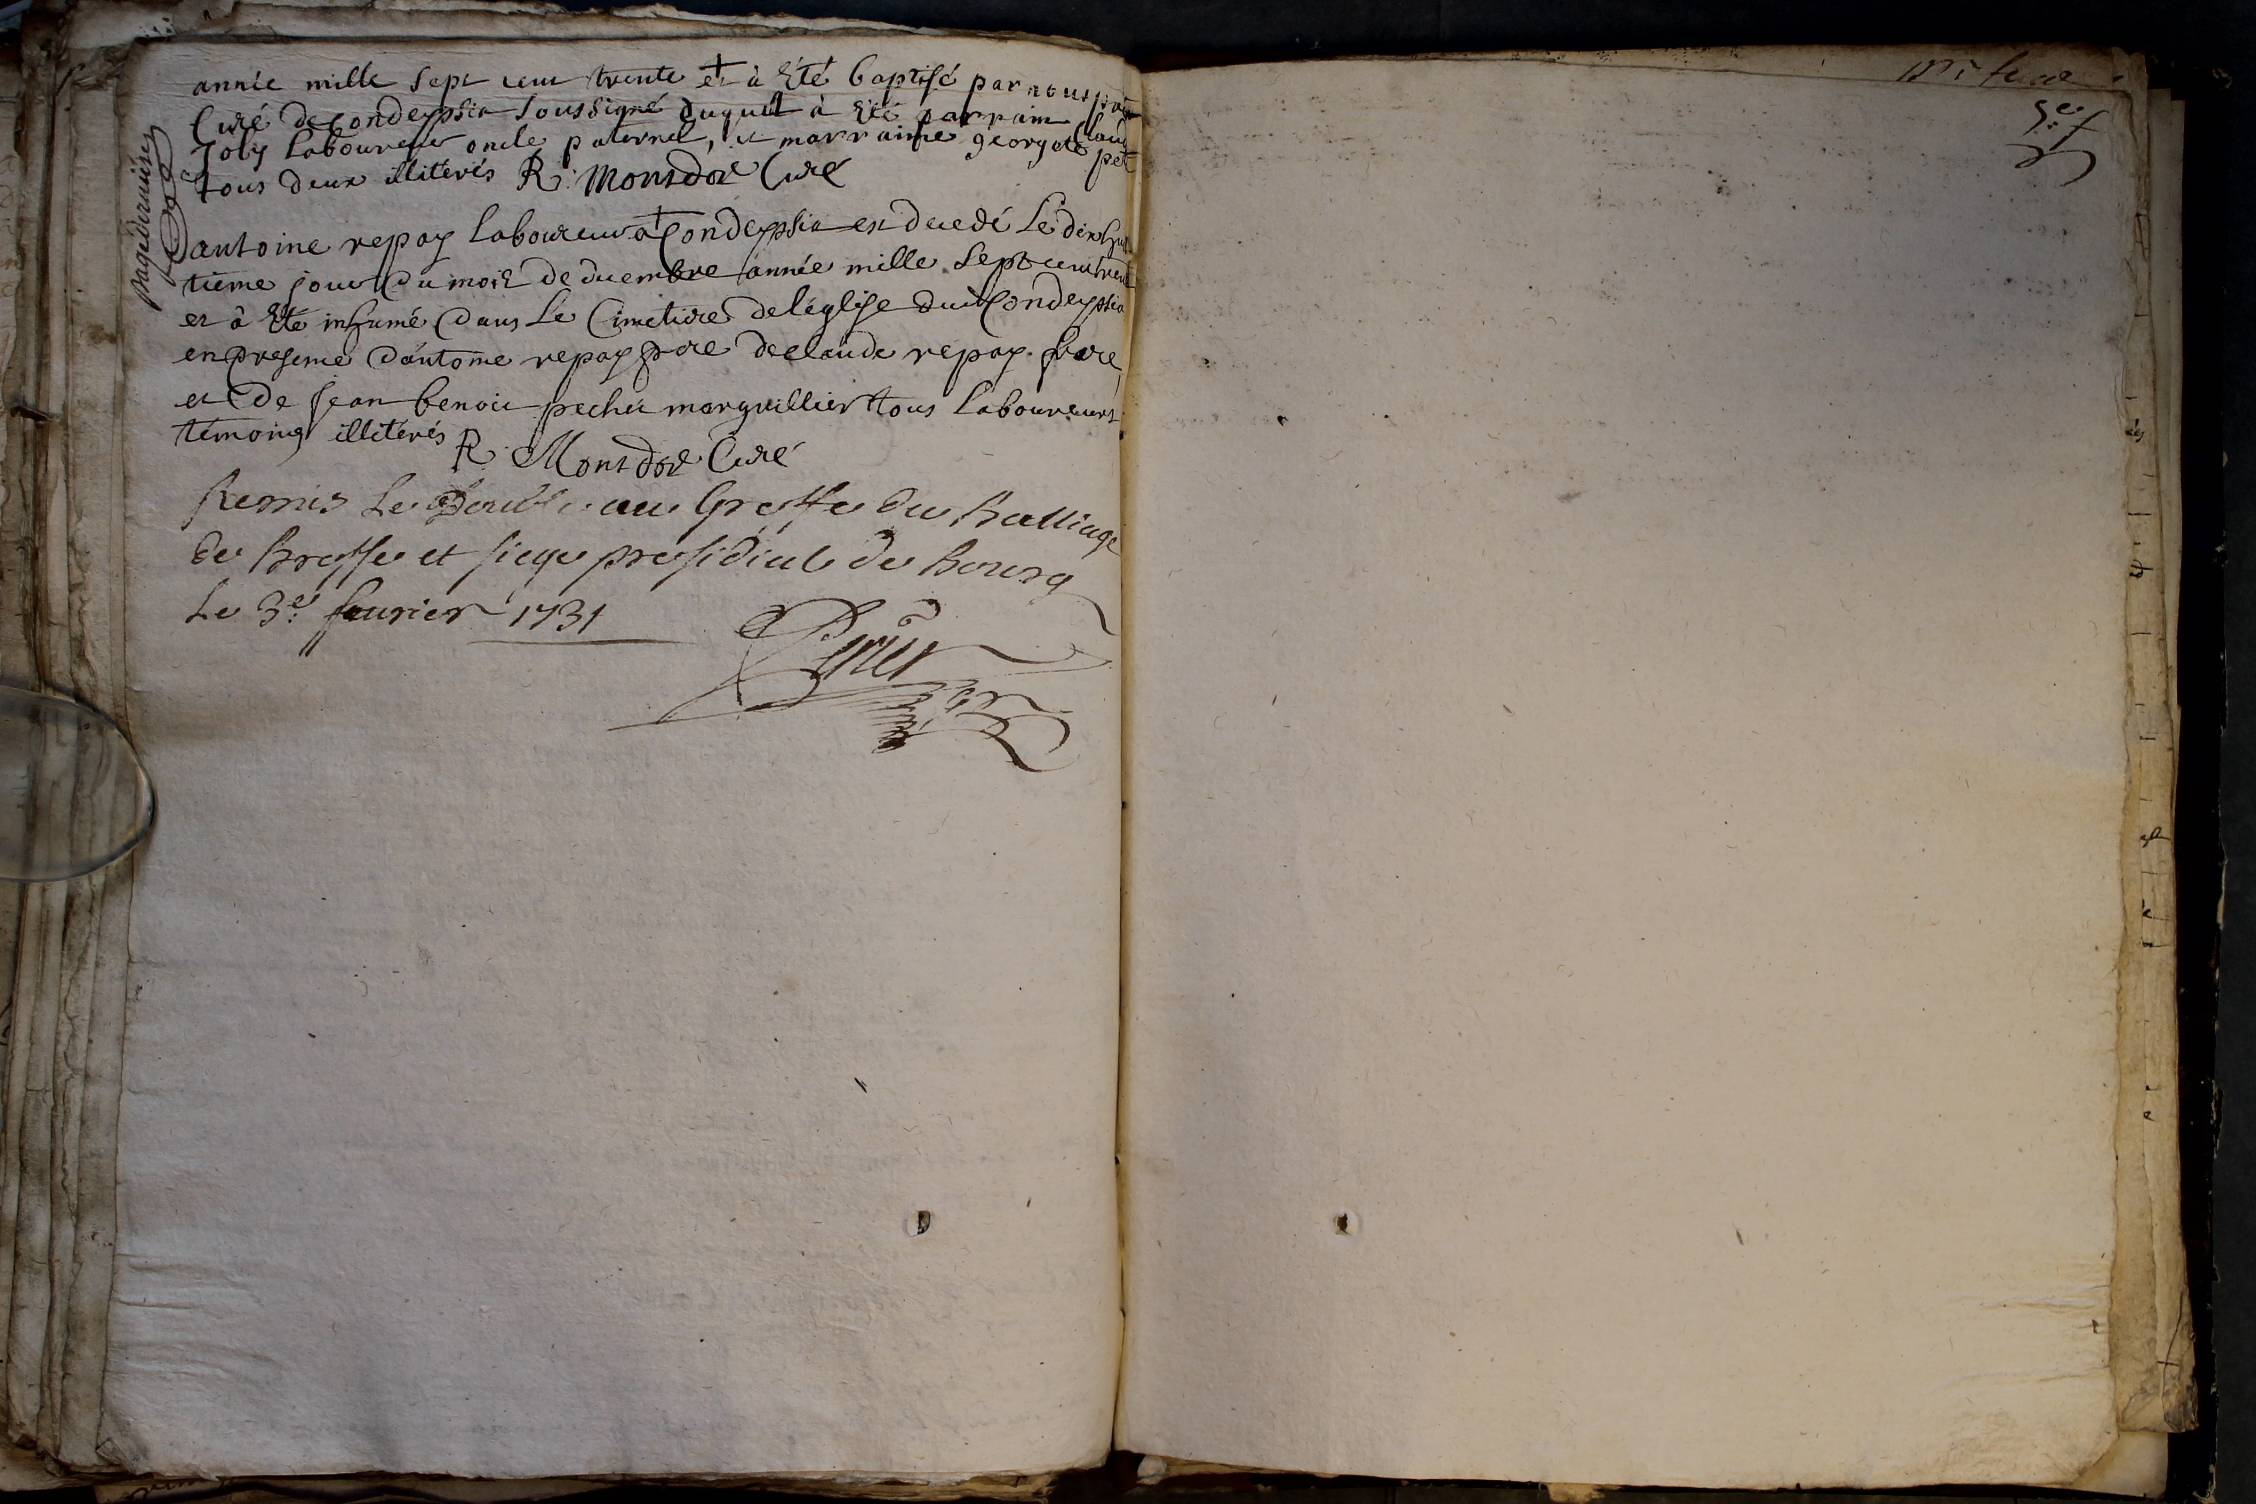 année mille sept cent trente et à été baptisé par nous prêtre
Curé de Condeyssia soussigné duquel à été parrain Claude
Joly laboureur oncle paternel, et marraine georgete
tous deux illitérés R. Montdor Curé
antoine repay laboureur a Condeyssia est decedé le dixhui
tieme jour du mois de decembre année mille sept cent trente
et à été inhumé dans le Cimetiere de l'église dud Condeyssia
en presence d'antoine repay pere de claude repay frere
et de jean benoit pechu marguillier tous laboureurs
témoins illitérés
R. Montdor Curé
Remis le Double au Greffe du Balliage
de Bresse et siege presidial de Bourg
le 3e. feurier 1731
Page derniere
5e. f